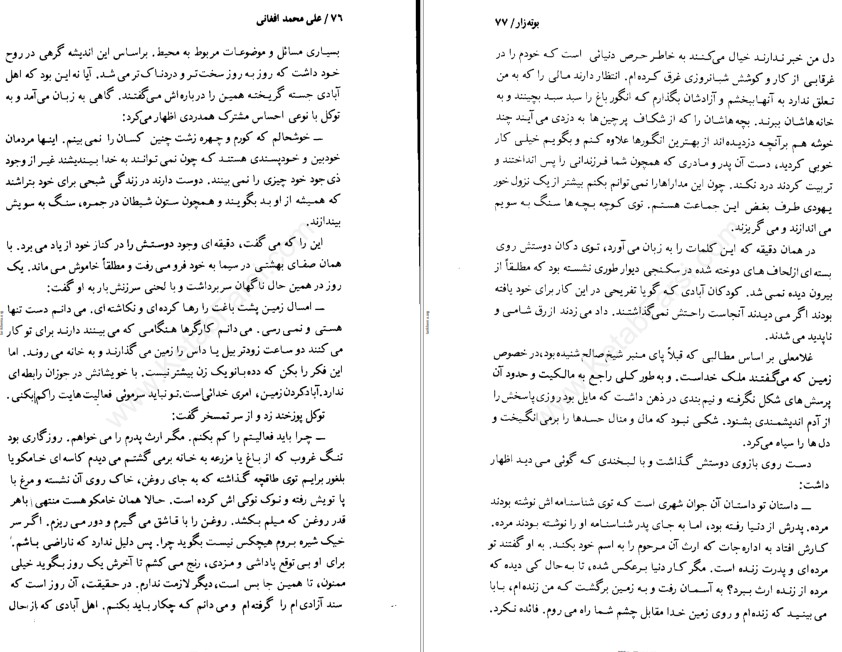 ۷۶/ علی محمد افغانی
بسیاری مسائل و موضوعات مربوط به محیط. براساس این اندیشه گرهی در روح
خود داشت که روز به روز سخت‌تر و دردناک‌تر می‌شد. آیا نه این بود که اهل
آبادی جسته گریخته همین را درباره‌اش می‌گفتند. گاهی به زبان می‌آمد و به
توکل با نوعی احساس مشترک همدردی اظهار می‌کرد:
ـــ خوشحالم که کورم و چهره زشت چنین کسان را نمی‌بینم. اینها مردمان
خودبین و خودپسندی هستند که چون نمی‌توانند به خدا بیندیشند غیر از وجود
ذی‌جود خود چیزی را نمی‌بینند. دوست دارند در زندگی شبحی برای خود بتراشند
که همیشه از او بد بگویند و همچون ستون شیطان در جمره، سنگ به سویش
بیندازند.
این را که می‌گفت، دقیقه‌ای وجود دوستش را در کنار خود از یاد می‌برد. با
همان صفای بهشتی در سیما به خود فرو می‌رفت و مطلقاً خاموش می‌ماند. یک
روز در همین حال ناگهان سر برداشت و با لحنی سرزنش‌بار به او گفت:
ـــ امسال زمین پشت باغت را رها کرده‌ای و نکاشته‌ای. می‌دانم دست تنها
هستی و نمی‌رسی. می‌دانم کارگرها هنگامی که می‌بینند دارند برای تو کار
می‌کنند دو ساعت زودتر بیل یا داس را زمین می‌گذارند و به خانه می‌روند. اما
این فکر را بکن که ده‌بانو یک زن بیشتر نیست. با خویشانش در جوزان رابطه‌ای
ندارد. آباد کردن زمین، امری خدائی است. تو نباید سرموئی فعالیت‌هایت را کم بکنی.
توکل پوزخند زد و از سر تمسخر گفت:
ـــ چرا باید فعالیتم را کم بکنم. مگر ارث پدرم را می‌خواهم. روزگاری بود
تنگ غروب که از باغ یا مزرعه به خانه برمی‌گشتم می‌دیدم کاسه‌ای خامکو یا
بلغور برایم توی طاقچه گذاشته که به جای روغن، خاک روی آن نشسته و مرغ با
پا تویش رفته و نوک نوکی اش کرده است. حالا همان خامکو هست منتهی با هر
قدر روغن که میلم بکشد. روغن را با قاشق می‌گیرم و دور می‌ریزم. اگر سر
خیک شیره بروم هیچکس نیست بگوید چرا. پس دلیل ندارد که ناراضی باشم.
برای او بی توقع پاداشی و مزدی، رنج می‌کشم تا آخرش یک روز بگوید خیلی
ممنون، تا همین جا بس است، دیگر لازمت ندارم. در حقیقت، آن روز است که
سند آزادی‌ام را گرفته‌ام و می‌دانم که چکار باید بکنم. اهل آبادی که از حال
بوته‌زار/ ۷۷
دل من خبر ندارند خیال می‌کنند به خاطر حرص دنیائی است که خودم را در
غرقابی از کار و کوشش شبانروزی غرق کرده‌ام. انتظار دارند مالی را که به من
تعلق ندارد به آنها ببخشم و آزادشان بگذارم که انگور باغ را سبد سبد بچینند و به
خانه‌هاشان ببرند. بچه‌هاشان را که از شکاف پرچین‌ها به دزدی می‌آیند چند
خوشه هم برآنچه دزدیده‌اند از بهترین انگورها علاوه کنم و بگویم خیلی کار
خوبی کردید، دست آن پدر و مادری که همچون شما فرزندانی را پس انداختند و
تربیت کردند درد نکند. چون این مداراها را نمی‌توانم بکنم بیشتر از یک نزول خور
یهودی طرف بغض این جماعت هستم. توی کوچه بچه‌ها سنگ به سویم
می‌اندازند و می‌گریزند.
در همان دقیقه که این کلمات را به زبان می‌آورد، توی دکان دوستش روی
بسته‌ای از لحاف‌های دوخته شده در سکنجی دیوار طوری نشسته بود که مطلقاً از
بیرون دیده نمی‌شد. کودکان آبادی که گویا تفریحی در این کار برای خود یافته
بودند اگر می‌دیدند آنجاست راحتش نمی‌گذاشتند. داد می‌زدند ازرق شامی و
ناپدید می‌شدند.
غلامعلی بر اساس مطالبی که قبلاً پای منبر شیخ صالح شنیده بود، در خصوص
زمین که می‌گفتند ملک خداست. و به طور کلی راجع به مالکیت و حدود آن
پرسش‌های شکل نگرفته و نیم بندی در ذهن داشت که مایل بود روزی پاسخش را
از آدم اندیشمندی بشنود. شکی نبود که مال و منال حسدها را برمی‌انگیخت و
دل‌ها را سیاه می‌کرد.
دست روی بازوی دوستش گذاشت و با لبخندی که گوئی می‌دید اظهار
داشت:
ـــ داستان تو داستان آن جوان شهری است که توی شناسنامه‌اش نوشته بودند
مرده. پدرش از دنیا رفته بود، اما به جای پدر شناسنامه او را نوشته بودند مرده.
کارش افتاد به اداره‌جات که ارث آن مرحوم را به اسم خود بکند. به او گفتند تو
مرده‌ای و پدرت زنده است. مگر کار دنیا برعکس شده، تا به حال کی دیده که
مرده از زنده ارث ببرد؟ به آسمان رفت و به زمین برگشت که من زنده‌ام، بابا
می‌بینید که زنده‌ام و روی زمین خدا مقابل چشم شما راه می‌روم. فائده نکرد.